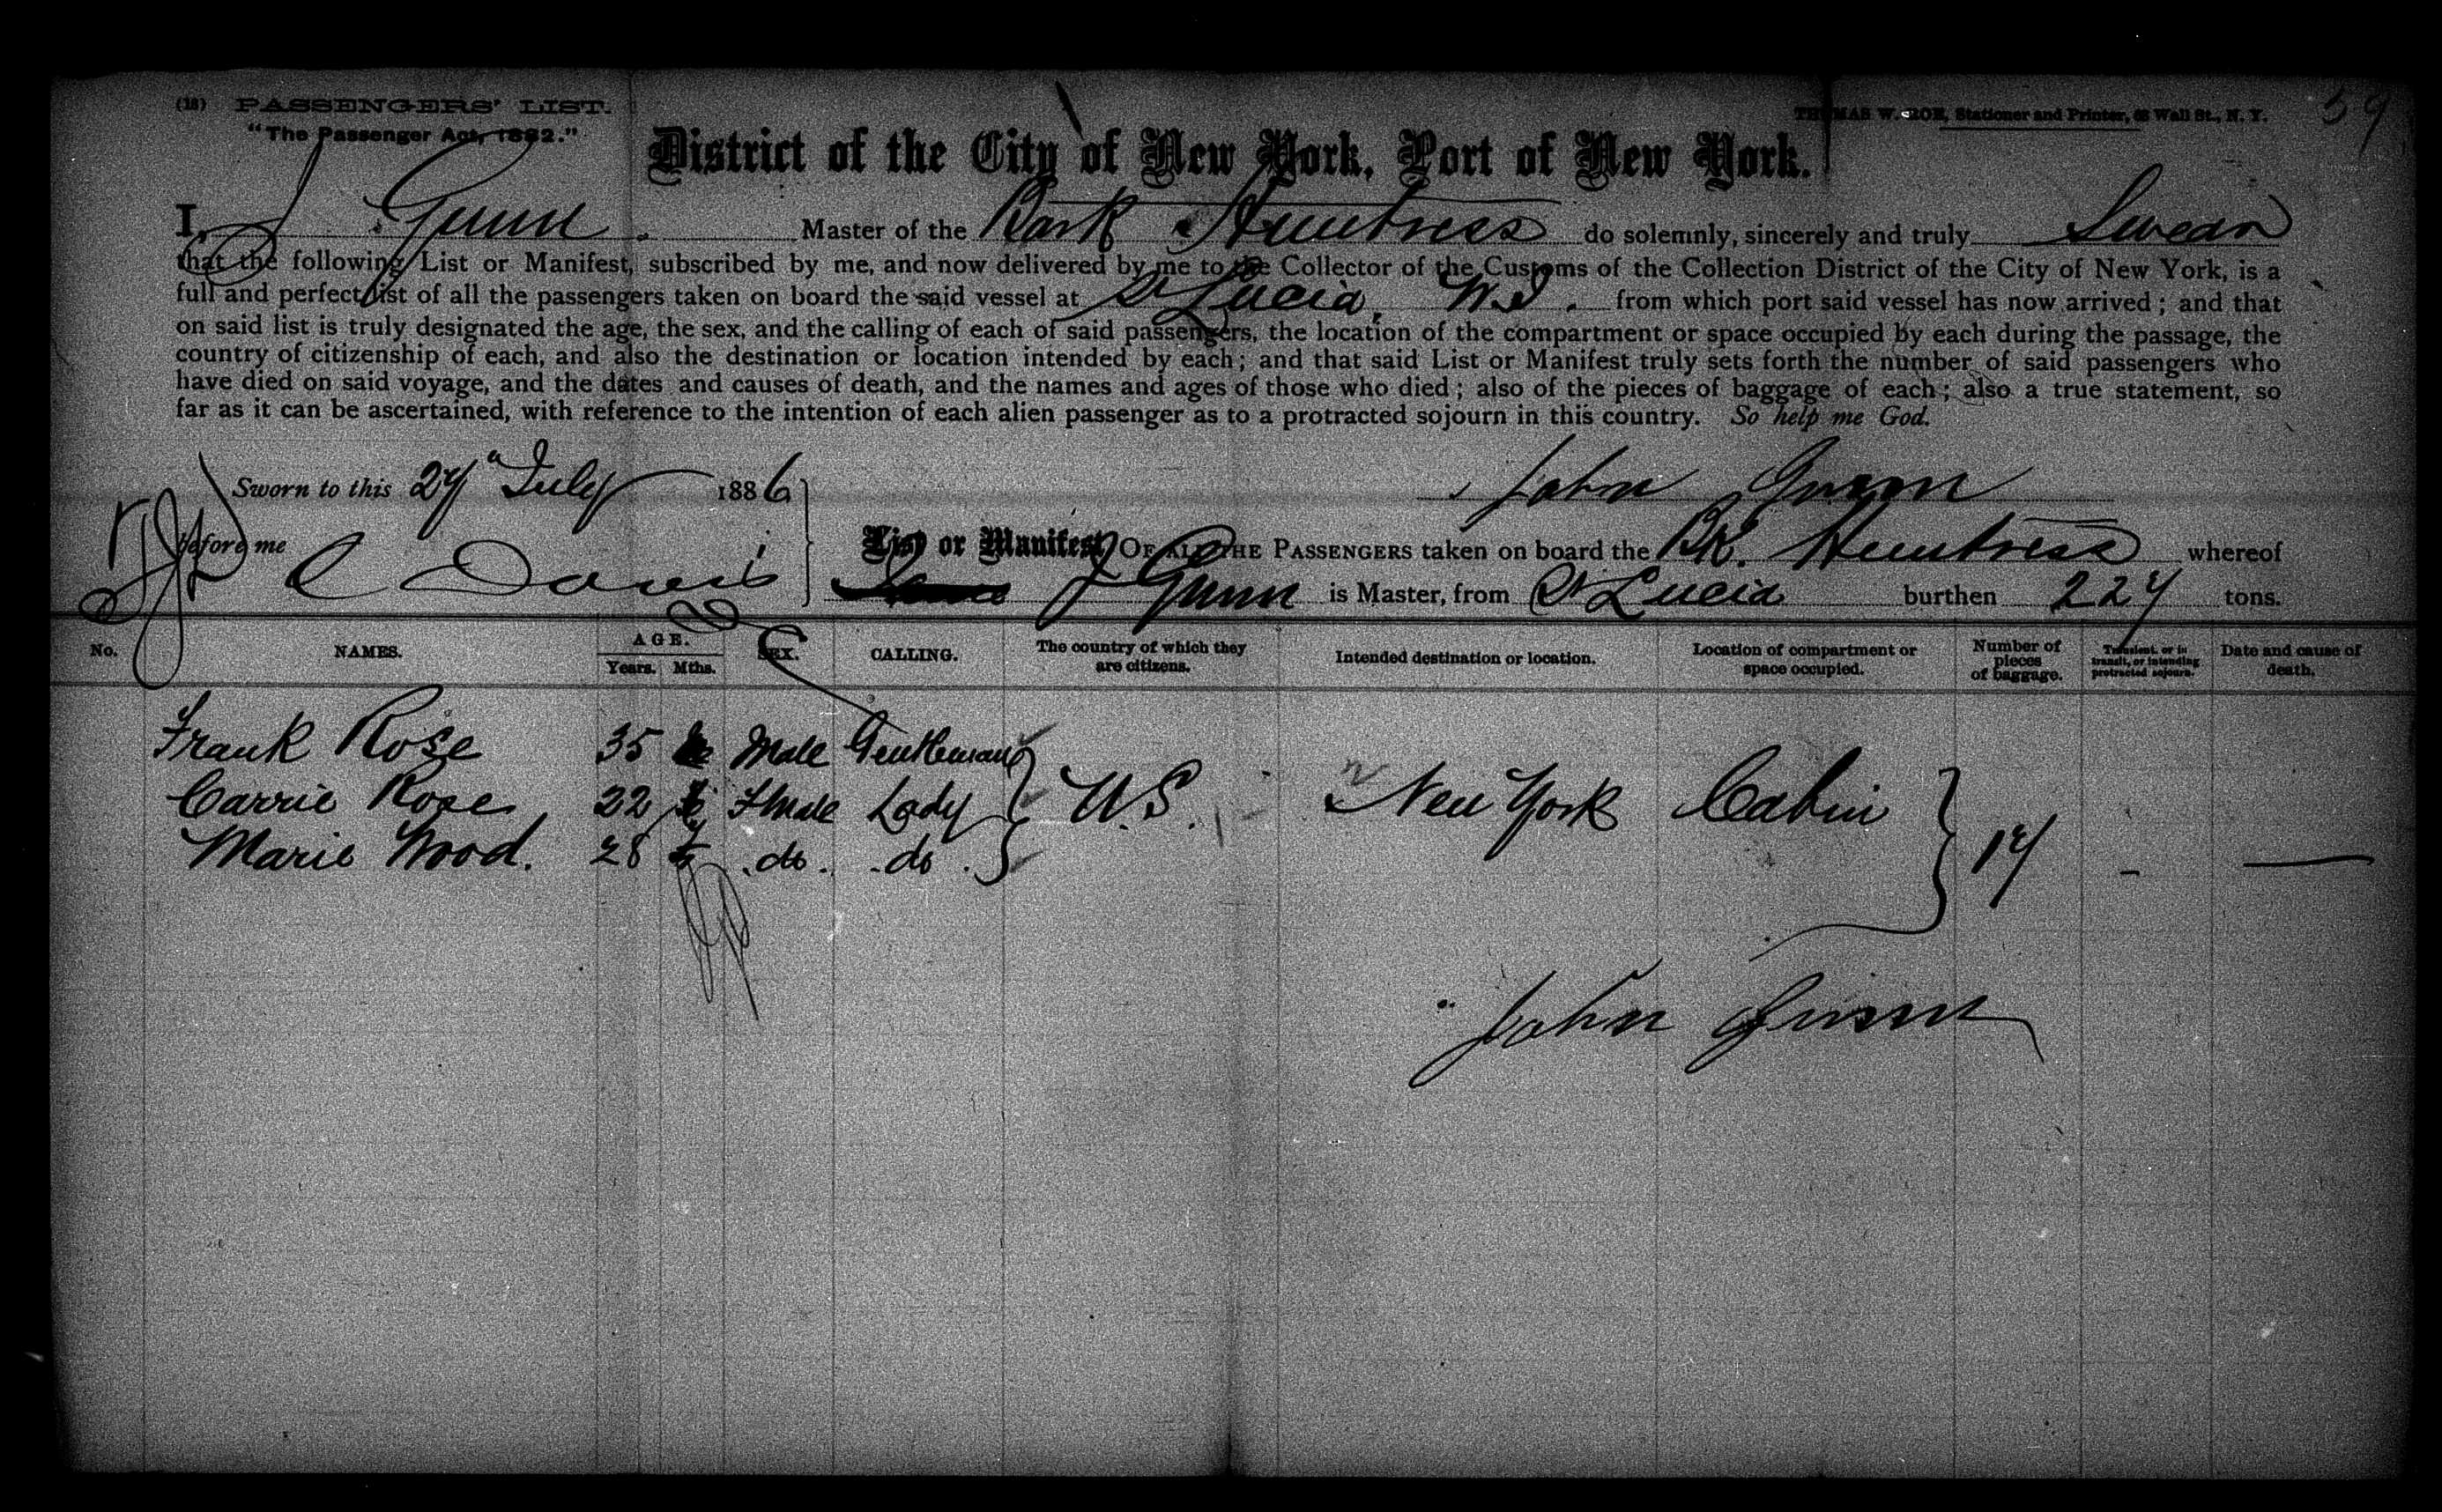 (18) PASSENGERS' LIST.
"The Passenger Act, 1882."
THOMAS W. ROE, Stationer and Printer, Wall St., N. Y.
59
District of the City of New York, Port of New York.
I, J Gunn Master of the Bark Huntress do solemnly, sincerely and truly Swear
that the following List or Manifest, subscribed by me, and now delivered by me to the Collector of the Customs of the Collection District of the City of New York, is a
full and perfect list of all the passengers taken on board the said vessel at St Lucia, W.I. from which port said vessel has now arrived; and that
on said list is truly designated the age, the sex, and the calling of each of said passengers, the location of the compartment or space occupied by each during the passage, the
country of citizenship of each, and also the destination or location intended by each; and that said List or Manifest truly sets forth the number of said passengers who
have died on said voyage, and the dates and causes of death, and the names and ages of those who died; also of the pieces of baggage of each; also a true statement, so
far as it can be ascertained, with reference to the intention of each alien passenger as to a protracted sojourn in this country. So help me God.
Sworn to this 27" July 1886
John Gunn
before me C Davis
List or Manifest OF ALL THE PASSENGERS taken on board the Bk. Huntress whereof
J Gunn is Master, from St Lucia burthen 227 tons.
No. NAMES. AGE. Years. Mths. SEX. CALLING. The country of which they are citizens. Intended destination or location. Location of compartment or space occupied. Number of pieces of baggage. Transient, or in transit, or intending protracted sojourn. Date and cause of death.
Frank Rose 35 Male Gentleman
Carrie Rose 22 Fmale Lady U.S. New York Cabin
Marie Wood. 28 do. do. 17 - —
John Gunn